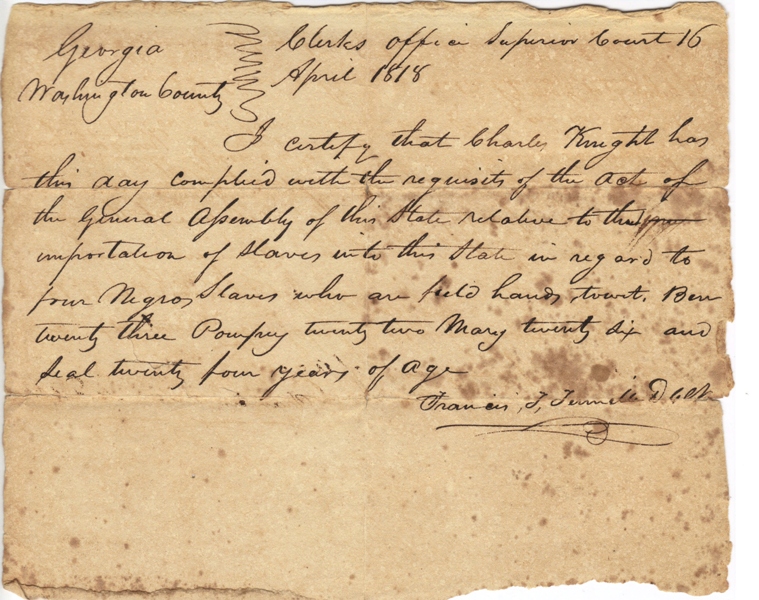 Georgia
Washington County
Clerks office Superior Court 16
April 1818
I certify that Charles Knight has
this day complied with the requisits of the Act of
the General Assembly of this State relative to the
importation of Slaves into this State in regard to
four Negros Slaves who are field hands, towit, Ben
twenty three Pompey twenty two Mary twenty six and
Seal twenty four years of age
Francis T,